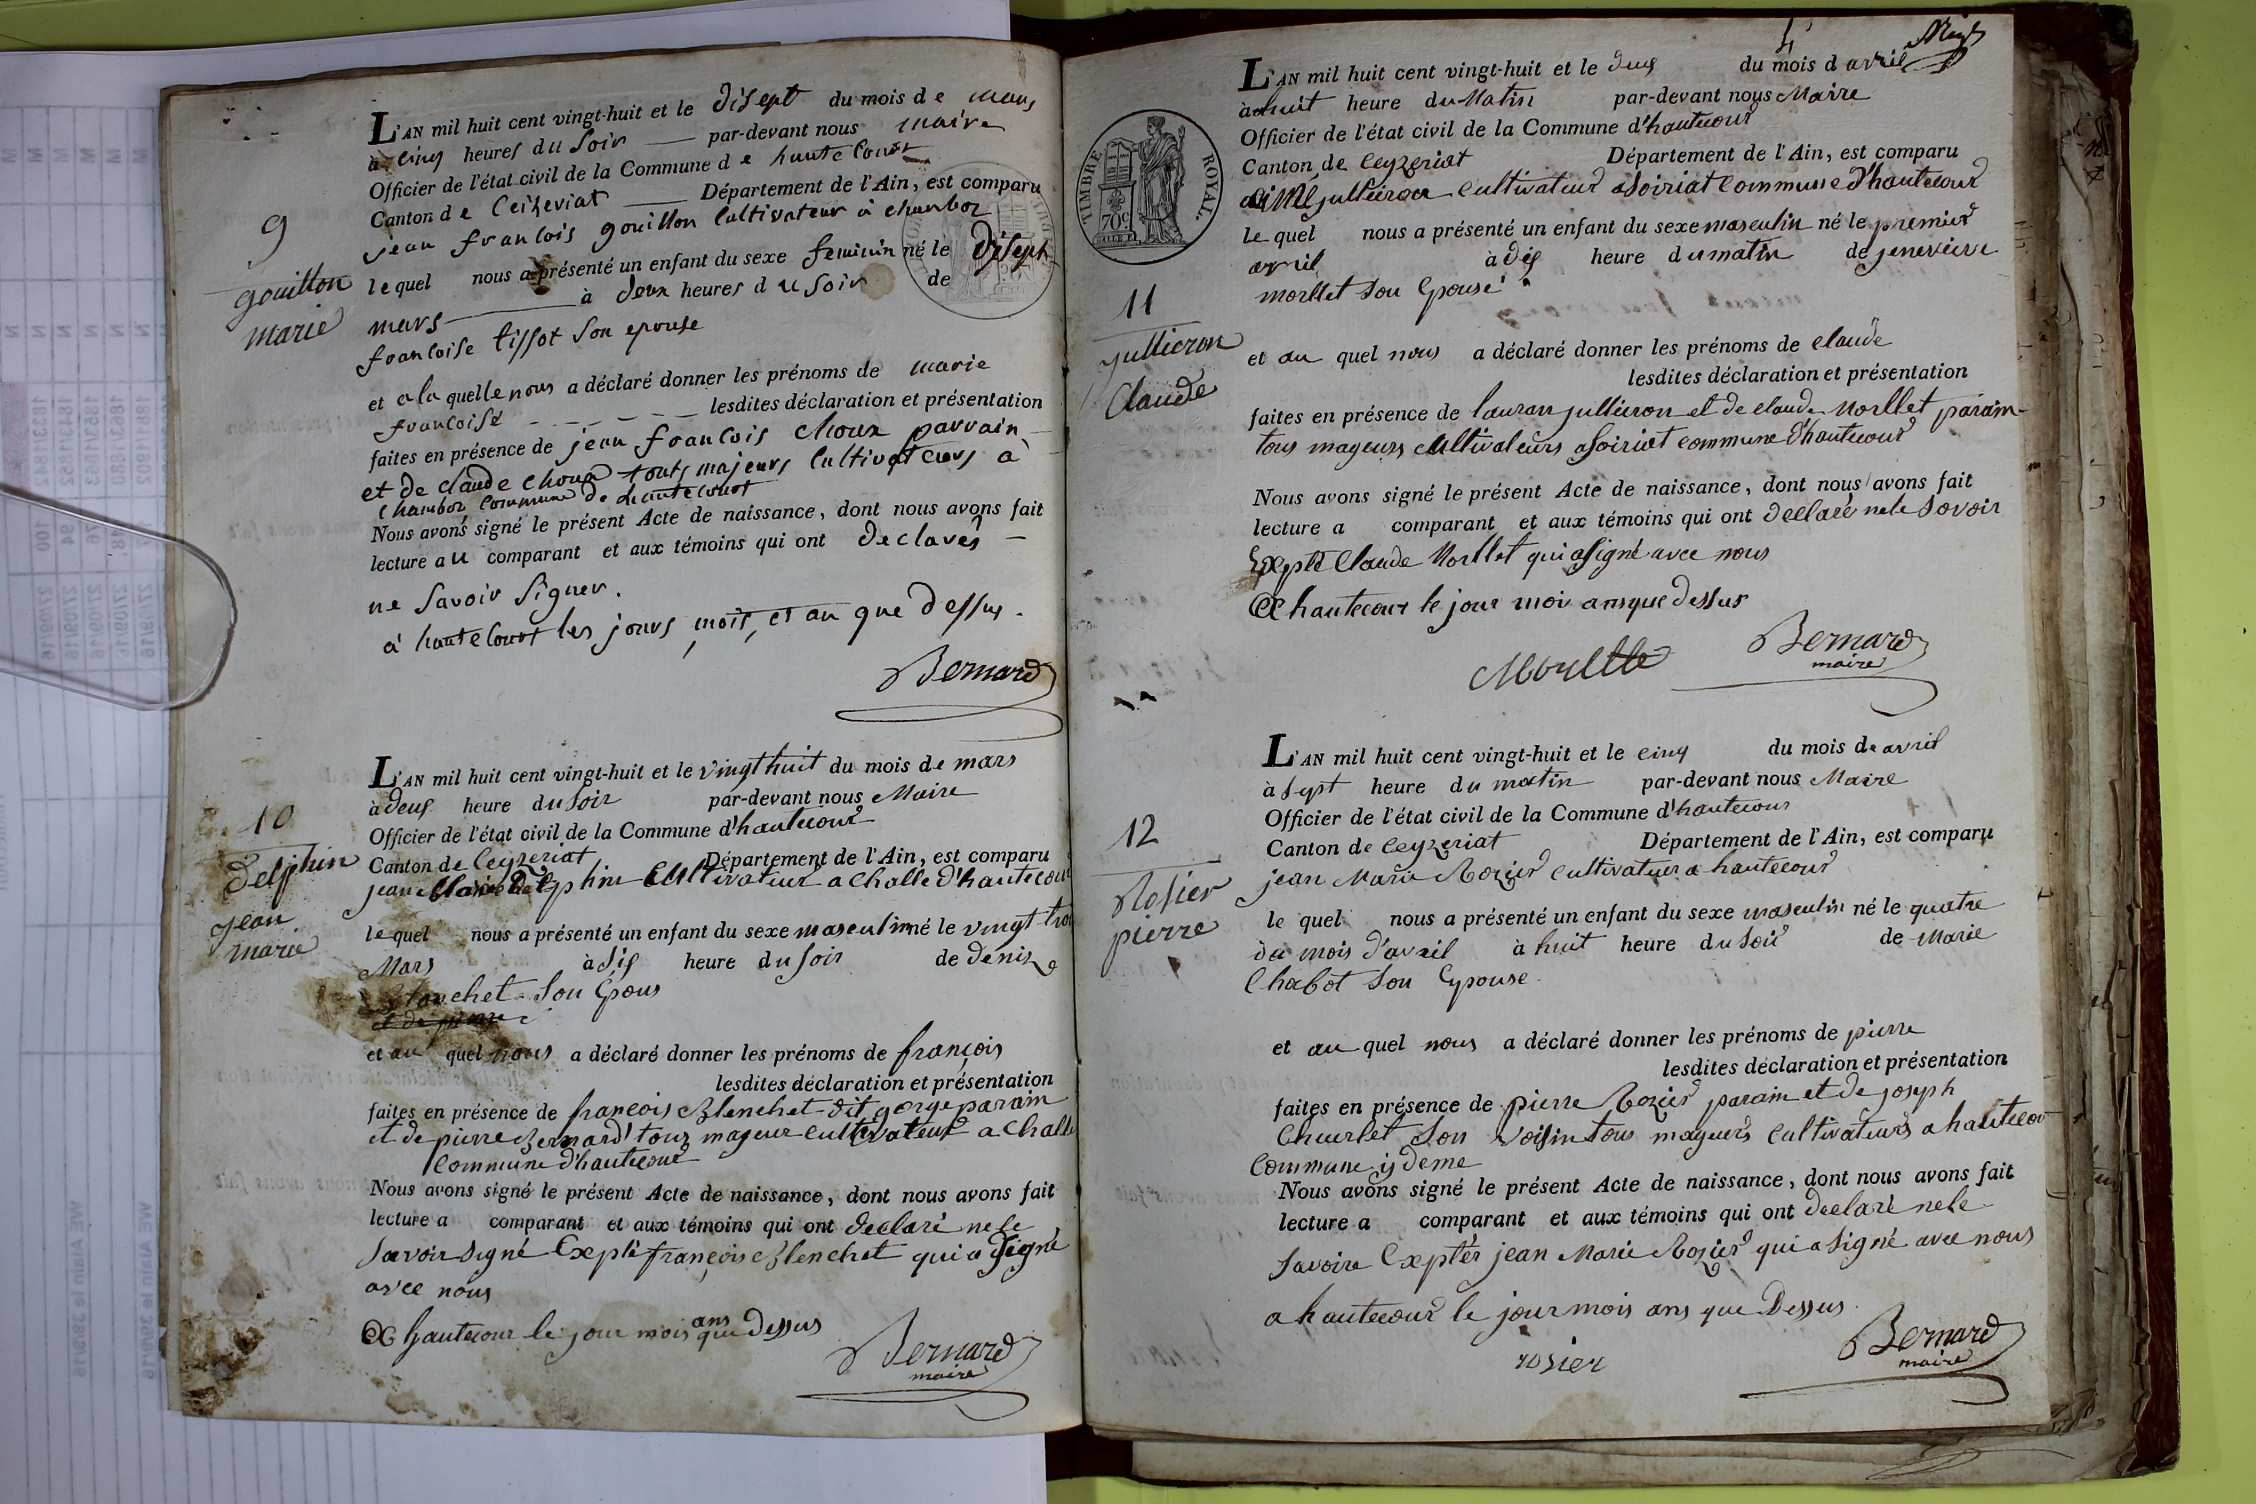 L'AN mil huit cent vingt-huit et le disept du mois de mars
à cinq heures du soir par-devant nous maire
Officier de l'état civil de la Commune de hautecourt
Canton de Ceizeriat Département de l'Ain, est comparu
jean francois gouillon Cultivateur à chambor
lequel nous a présenté un enfant du sexe feminin né le disept
mars à deux heures du soir de
francoise tissot son epouse
et a la quelle nous a déclaré donner les prénoms de marie
francoise lesdites déclaration et présentation
faites en présence de jean francois choux parrain
et de claude choux touts majeurs Cultivateurs à
chambor commune de hautecourt
Nous avons signé le présent Acte de naissance, dont nous avons fait
lecture au comparant et aux témoins qui ont declarés
ne savoir signer.
à hautecourt les jours, mois, et an que dessus.
Bernard
9
gouillon
marie
L'AN mil huit cent vingt-huit et le vingt huit du mois de mars
à deux heure du soir par-devant nous Maire
Officier de l'état civil de la Commune d'hautecour
Canton de Ceyzeriat Département de l'Ain, est comparu
jean Marie Delphin Cultivateur a Challe d'hautecour
lequel nous a présenté un enfant du sexe masculin né le vingt trois
Mars à six heure du soir de denize
Blanchet son Epous
et au quel nous a déclaré donner les prénoms de françois
lesdites déclaration et présentation
faites en présence de françois Blenchet dit gorge parain
et de pierre Bernard touz majeur cultivateur a Challe
Commune d'hautecour
Nous avons signé le présent Acte de naissance, dont nous avons fait
lecture a comparant et aux témoins qui ont declaré ne le
savoir signé Expté françois Blenchet qui a signé
avec nous
A hautecour le jour mois ans que dessus
Bernard
maire
10
Delphin
jean
marie
4
L'AN mil huit cent vingt-huit et le deux du mois d avril
à huit heure du Matin par-devant nous Maire
Officier de l'état civil de la Commune d'hautecour
Canton de Ceyzeriat Département de l'Ain, est comparu
jullieron Cultivateur a Soiriat Commune d'hautecour
lequel nous a présenté un enfant du sexe masculin né le premier
avril à dix heure du matin de jenevieve
morllet son Epouse
et au quel nous a déclaré donner les prénoms de claude
lesdites déclaration et présentation
faites en présence de lauran jullieron et de claude Morllet parain
tous mageurs cultivateurs a Soiriat commune d'hautecour
Nous avons signé le présent Acte de naissance, dont nous avons fait
lecture a comparant et aux témoins qui ont declaré ne le savoir
Expté Claude Morllet qui a signé avec nous
A hautecour le jour moi ans que dessus
Bernard
maire
11
jullieron
Claude
TIMBRE ROYAL.
70c
L'AN mil huit cent vingt-huit et le cinq du mois de avril
à sept heure du matin par-devant nous Maire
Officier de l'état civil de la Commune d'hautecour
Canton de Ceyzeriat Département de l'Ain, est comparu
jean Marie Rozier cultivateur a hautecour
le quel nous a présenté un enfant du sexe masculin né le quatre
du mois d'avril à huit heure du soir de Marie
Chabot son Epouse
et au quel nous a déclaré donner les prénoms de pierre
lesdites déclaration et présentation
faites en présence de pierre Rozier parain et de joseph
son voisin tous mageurs cultivateurs a hautecour
Commune ydeme
Nous avons signé le présent Acte de naissance, dont nous avons fait
lecture a comparant et aux témoins qui ont declaré ne le
savoire Exptér jean Marie Rozier qui a signé avec nous
a hautecour le jour mois ans que Dessus
rosier
Bernard
maire
12
Rosier
pierre